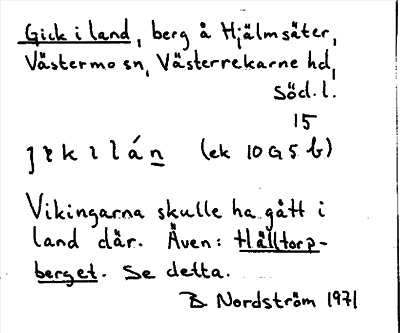 Gick i land, berg å Hjälmsäter,
Västermo sn, Västerrekarne hd,
Söd. l.
15
(ek 10G5 b)
Vikingarna skulle ha gått i
land där. Även: Hälltorp-
berget. Se detta.
B Nordström 1971